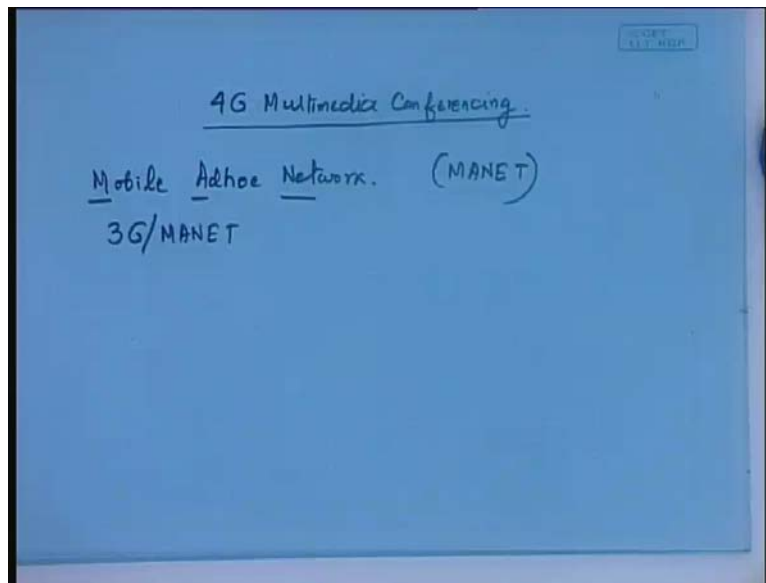 4G Multimedia Conferencing.
Mobile Adhoc Network. (MANET)
3G/MANET